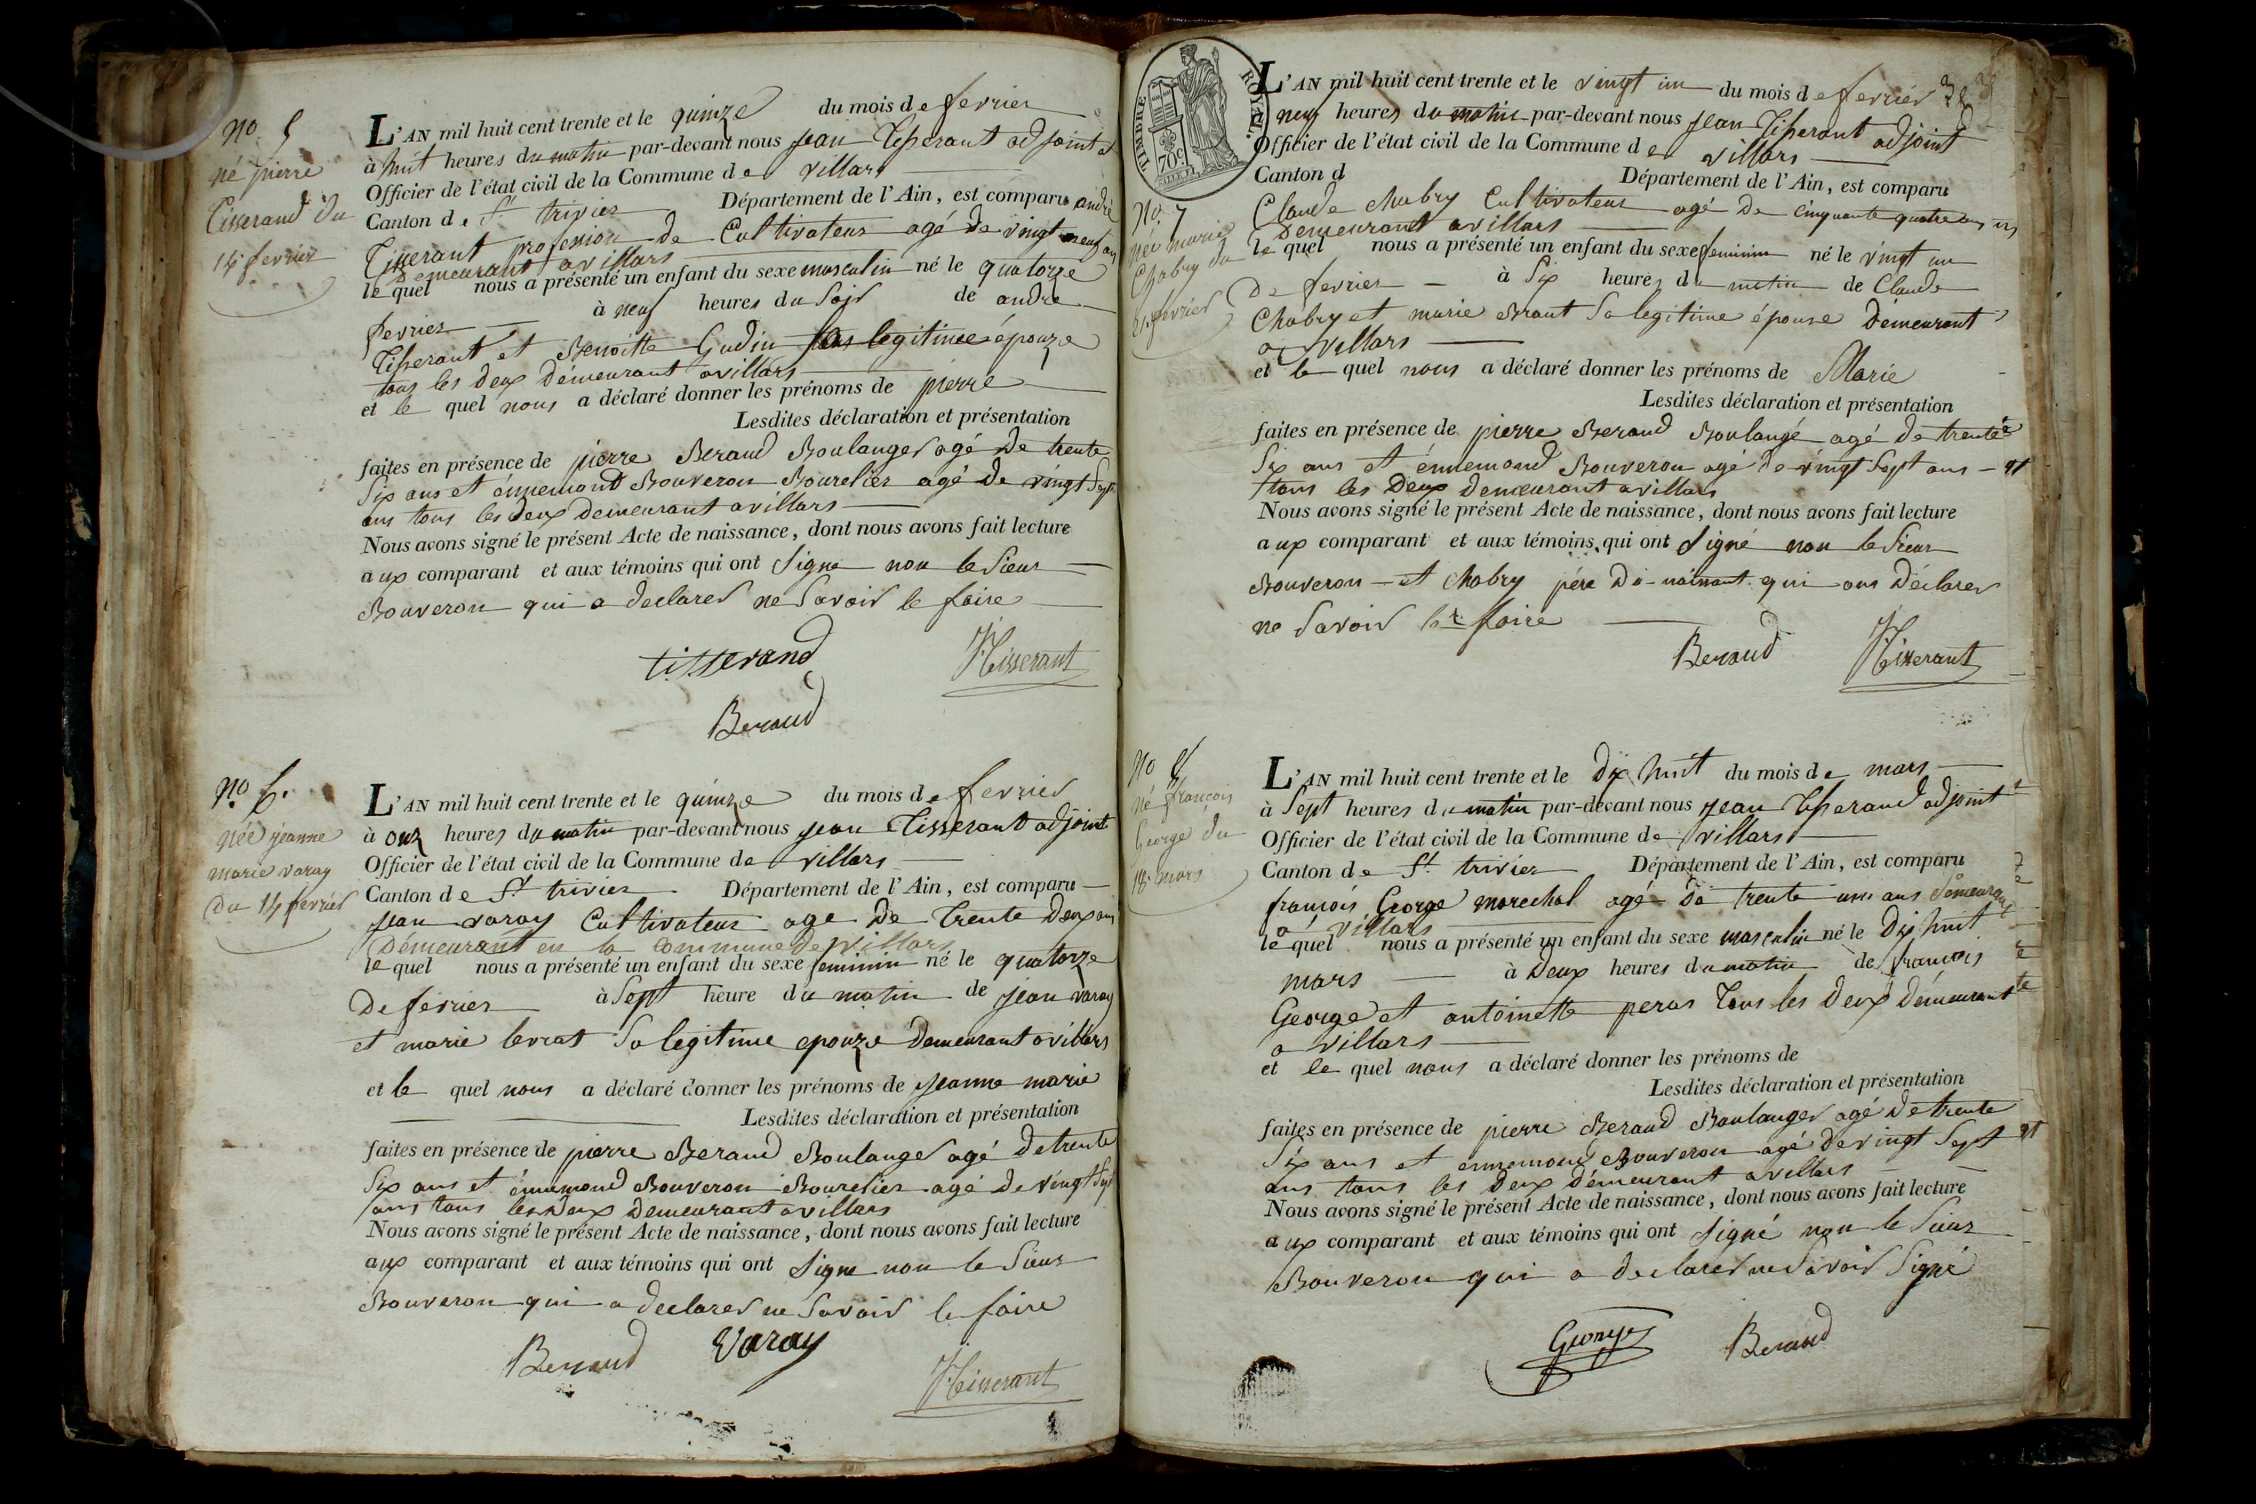 No 5
né pierre
Tisserand du
14 fevrier
L'AN mil huit cent trente et le quinze du mois de fevrier
à huit heures du matin par-devant nous jean Tisserant adjoint
Officier de l'état civil de la Commune de villars
Canton de St trivier Département de l'Ain, est comparu andré
Tisserant profession de Cultivateur agé de vingt neuf ans
Demeurant a villars
le quel nous a présenté un enfant du sexe masculin né le quatorze
fevrier à neuf heures du soir de andré
Tisserant et Benoitte Gudin sa legitime épouze
tous les deux démeurant a villars
et le quel nous a déclaré donner les prénoms de pierre
Lesdites déclaration et présentation
faites en présence de pierre Beraud Boulanger agé de trente
Six ans et énnemond Bouveron Bourelier agé de vingt Sept
ans tous les deux demeurant a villars
Nous avons signé le présent Acte de naissance, dont nous avons fait lecture
aux comparant et aux témoins qui ont Signé non le Sieur
Bouveron qui a declarer ne Savoir le faire
tisserand
Tisserant
Beraud
No 6.
née jeanne
marie varay
du 14 février
L'AN mil huit cent trente et le quinze du mois de fevrier
à onz heures du matin par-devant nous jean Tisserant adjoint
Officier de l'état civil de la Commune de villars
Canton de St trivier Département de l'Ain, est comparu
jean varay Cultivateur age de Trente Deux ans
Démeurant en la commune de villars
le quel nous a présenté un enfant du sexe feminin né le quatorze
De février à Sept heure du matin de jean varay
et marie levrat Sa legitime epouze Demeurant a villars
et le quel nous a déclaré donner les prénoms de jeanne marie
Lesdites déclaration et présentation
faites en présence de pierre Beraud Boulanger agé de trente
Six ans et énnemond Bouveron Bourelier agé de vingt Sept
ans tous les deux Demeurant a villars
Nous avons signé le présent Acte de naissance, dont nous avons fait lecture
aux comparant et aux témoins qui ont Signe non le Sieur
Bouveron qui a declarer ne Savoir le faire
Beraud Varay
Tisserant
TIMBRE ROYAL.
70c
No 7
née marie
Chabry du
21 fevrier
L'AN mil huit cent trente et le vingt un du mois de ferrier
neuf heures du matin par-devant nous jean Tisserant adjoint
Officier de l'état civil de la Commune de villars
Canton d Département de l'Ain, est comparu
Claude chabry Cultivateur agé de cinquante quatre ans
Demeurant a villars
le quel nous a présenté un enfant du sexe feminin né le vingt un
De fevrier à Six heures du matin de Claude
Chabry et marie Sa legitime épouse Démeurant
a villars
et le quel nous a déclaré donner les prénoms de Marie
Lesdites déclaration et présentation
faites en présence de pierre Beraud Boulangé agé de trente
Six ans et énnemond Bouveron agé de vingt Sept ans
tous les Deux demeurant a villars
Nous avons signé le présent Acte de naissance, dont nous avons fait lecture
aux comparant et aux témoins, qui ont Signé non le Sieur
Bouveron et chabry pére qui ons Déclarer
ne Savoir le faire
Beraud Tisserant
No 8
né francois
George du
18 mars
L'AN mil huit cent trente et le dix huit du mois de mars
à Sept heures du matin par-devant nous jean Tisserand adjoint
Officier de l'état civil de la Commune de villars
Canton de St trivier Département de l'Ain, est comparu
francois George marechal agé de trente uns ans Démeurant
a villars
le quel nous a présenté un enfant du sexe masculin né le Dix huit
mars à Deux heures du matin de francois
George et antoinette peras Tous les deux Démeurant
a villars
et le quel nous a déclaré donner les prénoms de
Lesdites déclaration et présentation
faites en présence de pierre Beraud Boulanger agé De trente
Six ans et énnemond Bouveron agé de vingt Sept
ans tous les deux Démeurant a villars
Nous avons signé le présent Acte de naissance, dont nous avons fait lecture
aux comparant et aux témoins qui ont Signé non le Sieur
Bouveron qui a declarer ne Savoir Signé
Georges Beraud